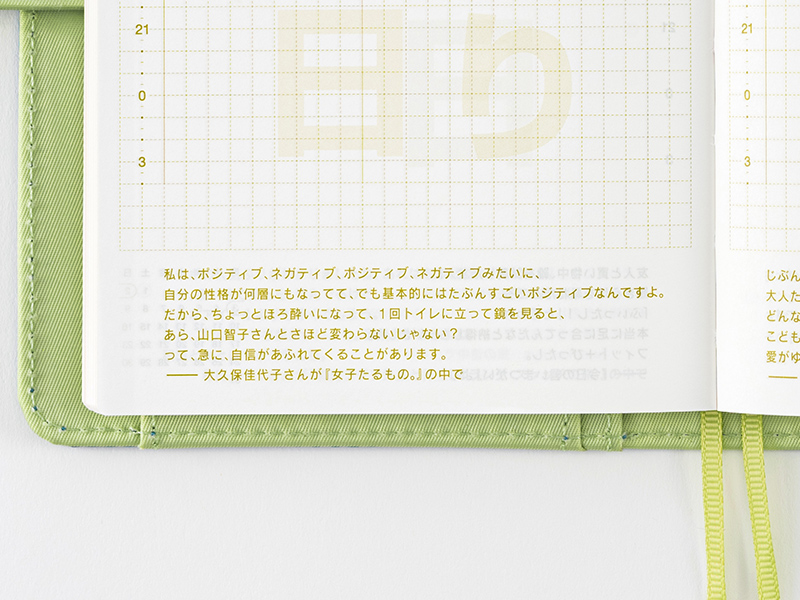 21
0
3
日り
私は、ポジティブ、ネガティブ、ポジティブ、ネガティブみたいに、
自分の性格が何層にもなってて、でも基本的にはたぶんすごいポジティブなんですよ。
だから、ちょっとほろ酔いになって、1回トイレに立って鏡を見ると、
あら、山口智子さんとさほど変わらないじゃない?
って、急に、自信があふれてくることがあります。
—— 大久保佳代子さんが『女子たるもの。』の中で
21
0
3
じぶん
大人た
どんな
こども
愛がゆ